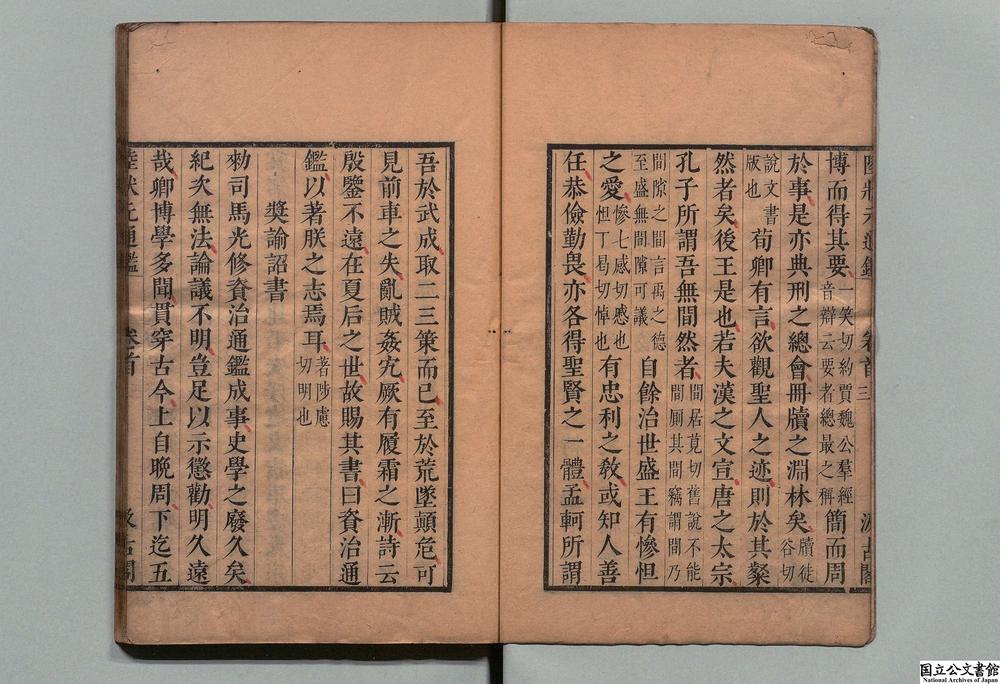 陸狀元通鑑 卷首 三 汲古閣
博而得其要一笑切約賈魏公羣經音辯云要者總最之稱簡而周
於事是亦典刑之總會冊牘之淵林矣牘徒谷切
說文書版也荀卿有言欲觀聖人之迹則於其粲
然者矣後王是也若夫漢之文宣唐之太宗
孔子所謂吾無間然者間居莧切舊說不能間厠其間竊謂間乃
間隙之間言禹之德至盛無間隙可議自餘治世盛王有慘怛
之愛慘七感切慼也怛丁曷切悼也有忠利之敎或知人善
任恭儉勤畏亦各得聖賢之一體孟軻所謂
吾於武成取二三策而已至於荒墜顛危可
見前車之失亂賊姦宄厥有履霜之漸詩云
殷鑒不遠在夏后之世故賜其書曰資治通
鑑以著朕之志焉耳著陟慮切明也
獎諭詔書
勑司馬光修資治通鑑成事史學之廢久矣
紀次無法論議不明豈足以示懲勸明久遠
哉卿博學多聞貫穿古今上自晚周下迄五
陸狀元通鑑 卷首 汲古閣
国立公文書館
National Archives of Japan